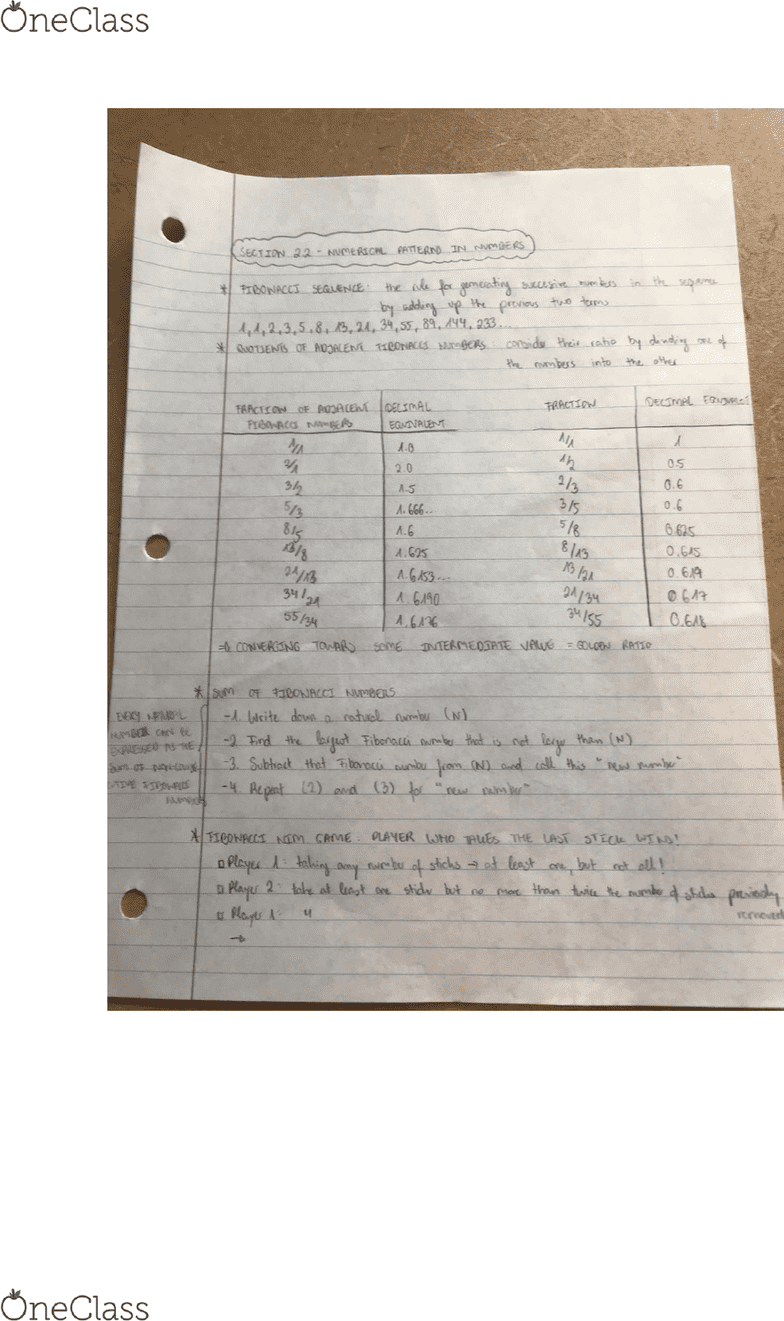 OneClass
SECTION 2.2 - NUMERICAL PATTERNS IN NUMBERS
* FIBONACCI SEQUENCE: the rule for generating succesive numbers in the sequence
by adding up the previous two terms
1, 1, 2, 3, 5, 8, 13, 21, 34, 55, 89, 144, 233...
* QUOTIENTS OF ADJACENT FIBONACCI NUMBERS: consider their ratio by dividing one of
the numbers into the other
FRACTION OF ADJACENT DECIMAL FRACTION DECIMAL EQUIVALENT
FIBONACCI NUMBERS EQUIVALENT
1/1 1.0 1/1 1
2/1 2.0 1/2 0.5
3/2 1.5 2/3 0.6
5/3 1.666.. 3/5 0.6
8/5 1.6 5/8 0.625
13/8 1.625 8/13 0.615
21/13 1.6153... 13/21 0.619
34/21 1.6190 21/34 0.617
55/34 1.6176 34/55 0.618
⇒ CONVERGING TOWARD SOME INTERMEDIATE VALUE = GOLDEN RATIO
* SUM OF FIBONACCI NUMBERS
EVERY NATURAL
NUMBER CAN BE
EXPRESSED AS THE
SUM OF NONCONSE
CUTIVE FIBONACCI
NUMBERS
-1. Write down a natural number (N)
-2. Find the largest Fibonacci number that is not larger than (N)
-3. Subtract that Fibonacci number from (N) and call this "new number"
-4. Repeat (2) and (3) for "new number"
* FIBONACCI NIM GAME: PLAYER WHO TAKES THE LAST STICK WINS!
□ Player 1: taking any number of sticks → at least one, but not all!
□ Player 2: take at least one stick but no more than twice the number of sticks previously
removed
□ Player 1: "
→
OneClass